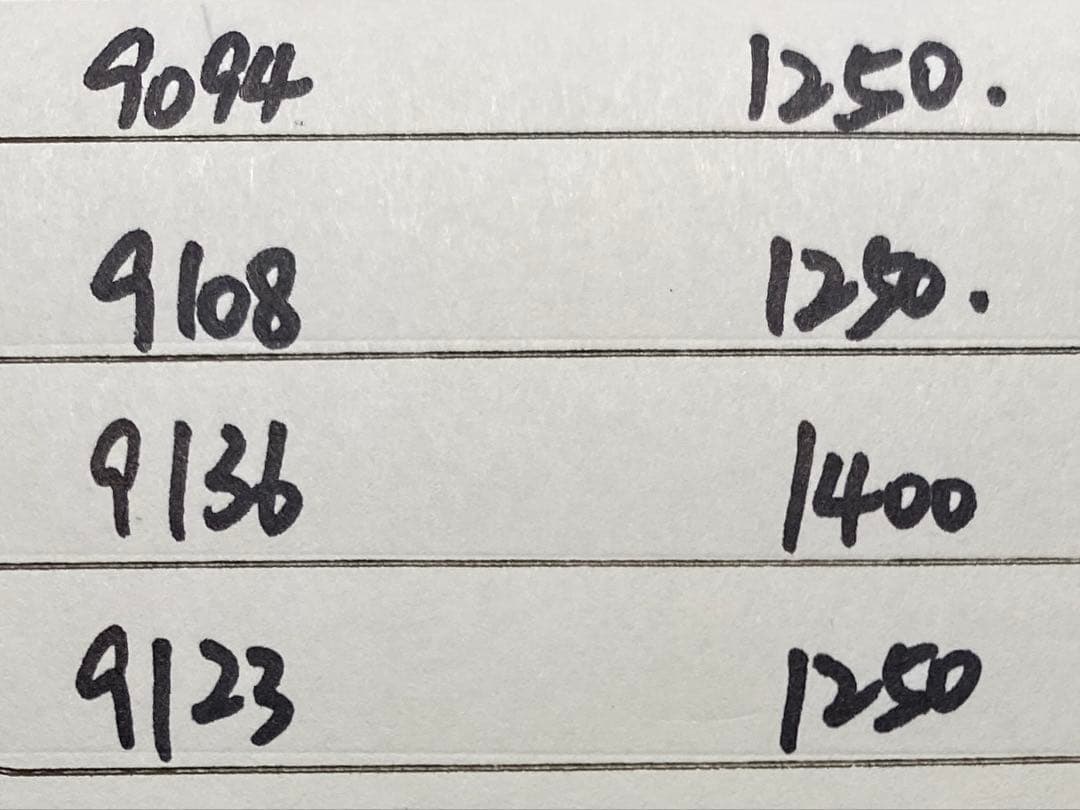 9094 1250.
9108 1250.
9136 1400
9123 1250